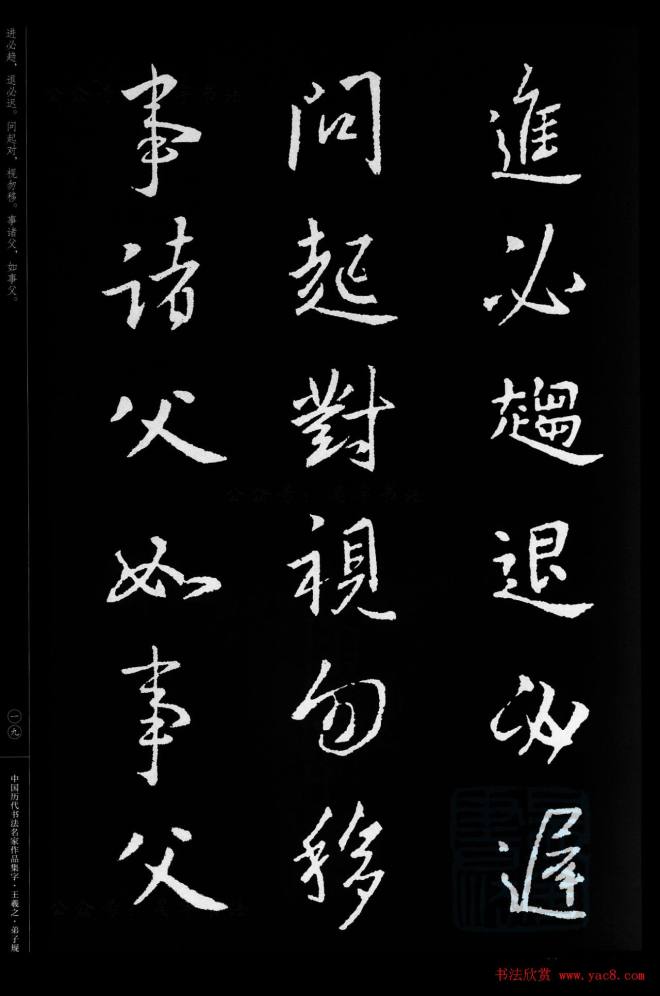 進必趨退必遲
問起對視勿移
事諸父如事父
进必趋，退必迟。问起对，视勿移。事诸父，如事父。
一九
中国历代书法名家作品集字·王羲之·弟子规
书法欣赏 www.yac8.com